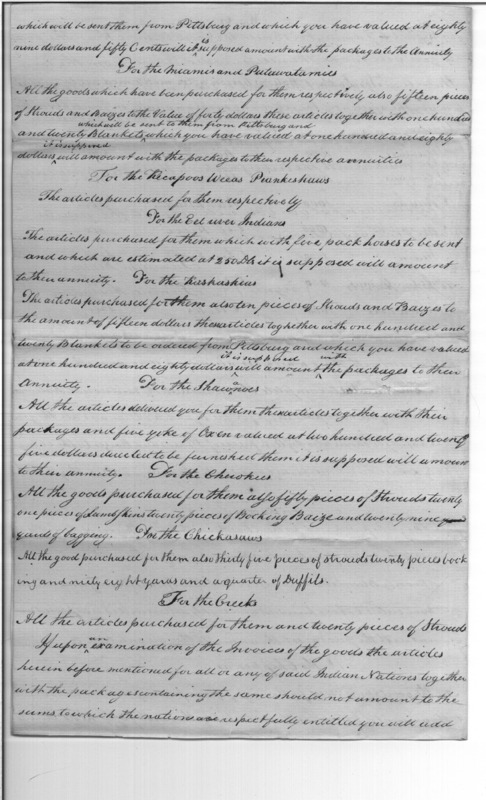 which will be sent them from Pittsburg and which you have valued at eighty
nine dollars and fifty Cents will it is supposed amount with the packages to the Annuity
For the Miamis and Putawatamies
All the goods which have been purchased for them respectively also fifteen pieces
of Strouds and Baizes to the Value of forty dollars these articles together with one hundred
which will be sent to them from Pittsburg and
and twenty Blankets which you have valued at one hundred and eighty
it is supposed
dollars will amount with the packages to their respective annuities
For the Kicapoos Weeas Peankeshaws
The articles purchased for them respectively
For the Eel river Indians
The articles purchased for them which with five pack horses to be sent
and which are estimated at 250 Dls it is supposed will amount
to their annuity. For the Kaskaskias
The articles purchased for them also ten pieces of Strouds and Baizes to
the amount of fifteen dollars these articles together with one hundred and
twenty Blankets to be ordered from Pittsburg and which you have valued
it is supposed with
at one hundred and eighty dollars will amount the packages to their
Annuity. For the Shawnoes
All the articles delivered you for them these articles together with their
packages and five yoke of Oxen valued at two hundred and twenty
five dollars directed to be furnished them it is supposed will amount
to their annuity. For the Cherokees
All the goods purchased for them also fifty pieces of Strouds twenty
one pieces of twenty pieces of Bocking Baize and twenty nine
yards of bagging. For the Chickasaws
All the good purchased for them also thirty five pieces of strouds twenty pieces bock
ing and ninty eight yards and a quarter of Duffils.
For the Creeks
All the articles purchased for them and twenty pieces of Strouds
If upon an examination of the Invoices of the goods the articles
herein before mentioned for all or any of said Indian Nations together
with the packages containing the same should not amount to the
sums to which the nations are respectfully entitled you will add